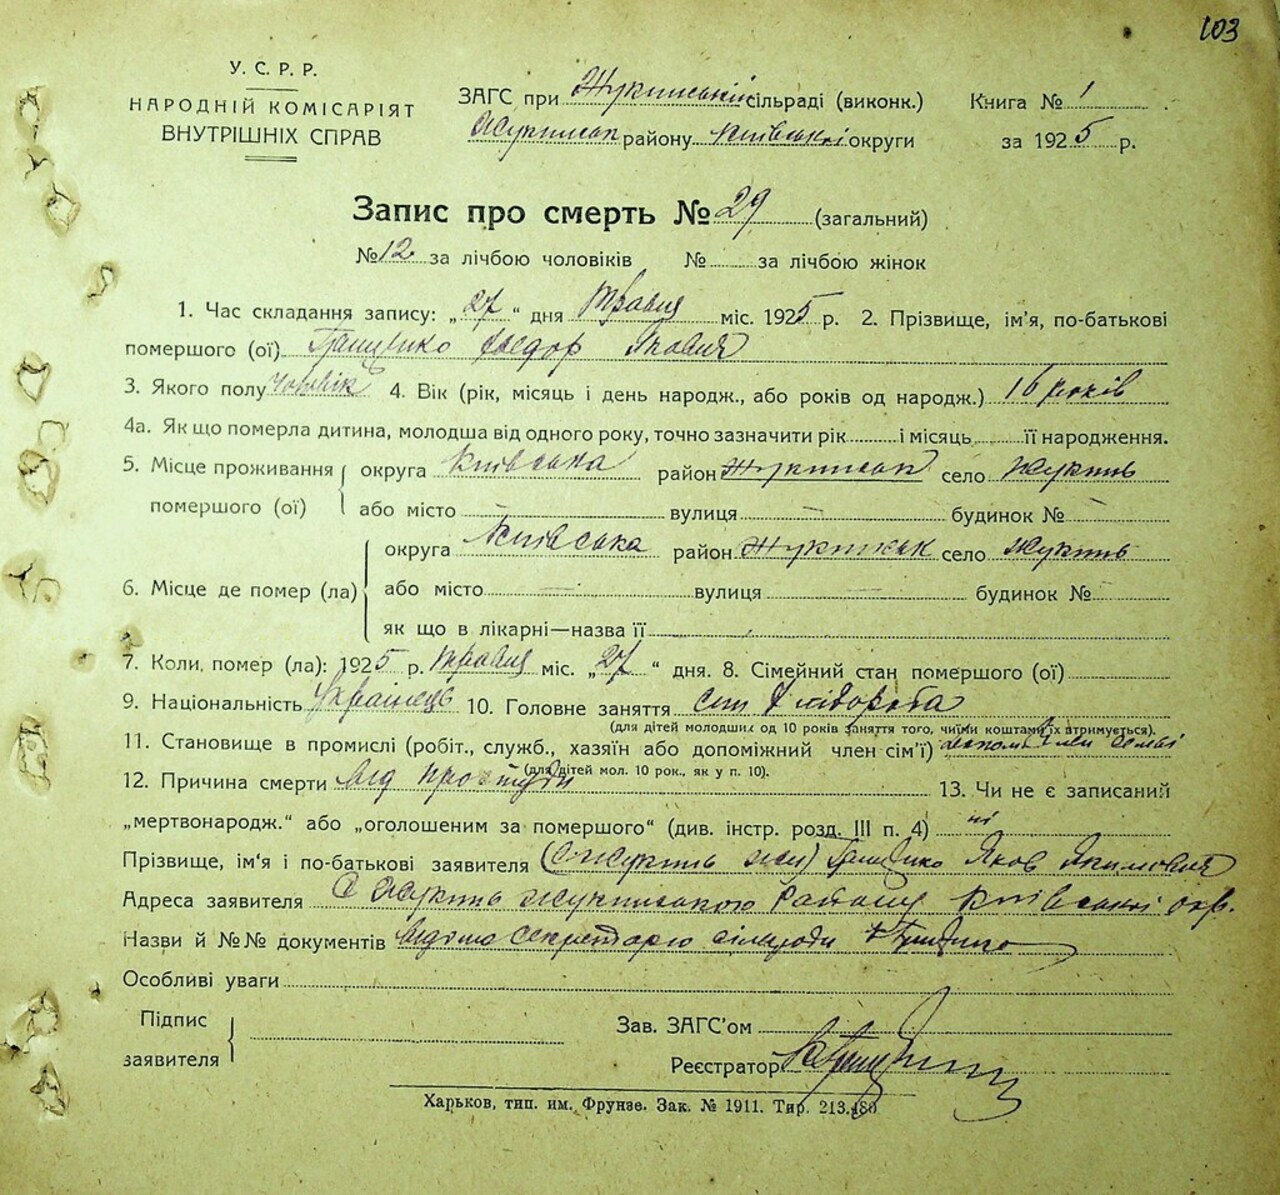 103
У. С. Р. Р.
НАРОДНІЙ КОМІСАРІЯТ
ВНУТРІШНІХ СПРАВ
ЗАГС при Жукинській сільраді (виконк.)
Жукинськ району Київської округи
Книга № 1
за 1925 р.
Запис про смерть № 29 (загальний)
№ 12 за лічбою чоловіків № за лічбою жінок
1. Час складання запису: „27“ дня Травня міс. 1925 р. 2. Прізвище, ім’я, по-батькові
помершого (ої) Федор
3. Якого полу Чоловік 4. Вік (рік, місяць і день народж., або років од народж.) 16 років
4а. Як що померла дитина, молодша від одного року, точно зазначити рік і місяць її народження.
5. Місце проживання помершого (ої) округа Київська район Жукинськ село Жукинь
або місто — вулиця — будинок № —
6. Місце де помер (ла) округа Київська район Жукинськ село Жукинь
або місто — вулиця — будинок № —
як що в лікарні—назва її
7. Коли помер (ла): 1925 р. Травня міс. „27“ дня. 8. Сімейний стан помершого (ої)
9. Національність Українець 10. Головне заняття
(для дітей молодших од 10 років заняття того, чиїми коштами їх втримується).
11. Становище в промислі (робіт., служб., хазяїн або допоміжний член сім’ї)
(для дітей мол. 10 рок., як у п. 10).
12. Причина смерти від простуди 13. Чи не є записаний
„мертвонародж.“ або „оголошеним за помершого“ (див. інстр. розд. III п. 4) ні
Прізвище, ім‘я і по-батькові заявителя Яков Якимович
Адреса заявителя С Жукинь Жукинського Району Київської окр.
Назви й №№ документів відомо секретарю сільради
Особливі уваги
Підпис заявителя
Зав. ЗАГС’ом
Реєстратор
Харьков, тип. им. Фрунзе. Зак. № 1911. Тир. 213.480